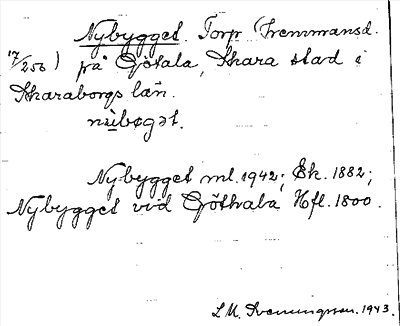 Nybygget. Torp (Fremmansd.
17/250) på Götala, Skara stad i
Skaraborgs län.
nỳbøgət.
Nybygget ml. 1942; Ek. 1882;
Nybygget vid Göthala Hfl. 1800.
L. M. Svenungsson. 1943.